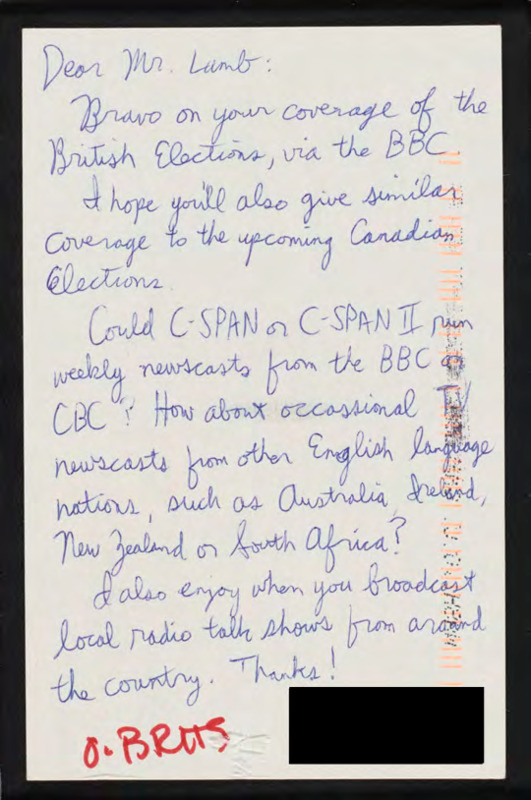 Dear Mr. Lamb:
Bravo on your coverage of the
British Elections, via the BBC.
I hope you'll also give similar
coverage to the upcoming Canadian
Elections.
Could C-SPAN or C-SPAN II run
weekly newscasts from the BBC or
CBC? How about occassional TV
newscasts from other English language
nations, such as Australia, Ireland,
New Zealand or South Africa?
I also enjoy when you broadcast
local radio talk shows from around
the country. Thanks!